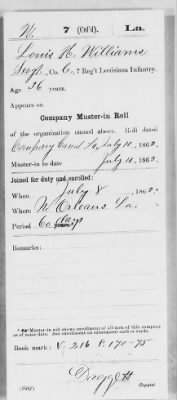 W. 7 (Col'd). La.
Louis H. Williams
Co. C, 7 Reg't Louisiana Infantry.
Age 36 years.
Appears on
Company Muster-in Roll
of the organization named above. Roll dated
July 10, 1863.
Muster-in to date July 10, 1863.
Joined for duty and enrolled:
When July 8, 1863.
Where N. Orleans La.
Period 60 days
Remarks:
Book mark: V. 216 P. 170-75
(356f) Copyist.